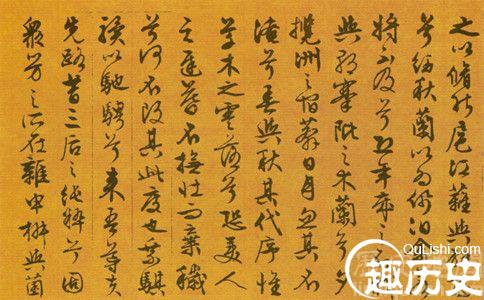 之以脩能扈江蘺與
兮紉秋蘭以為佩汩余
將不及兮恐年歲之
與朝搴阰之木蘭兮夕
攬洲之宿莽日月忽其不
淹兮春與秋其代序惟
草木之零落兮恐美人
之遲暮不撫壯而棄穢
兮何不改其此度也乘騏
驥以馳騁兮來吾導夫
先路昔三后之純粹兮固
眾芳之所在雜申椒與菌
QuLiShi.com
趣历史